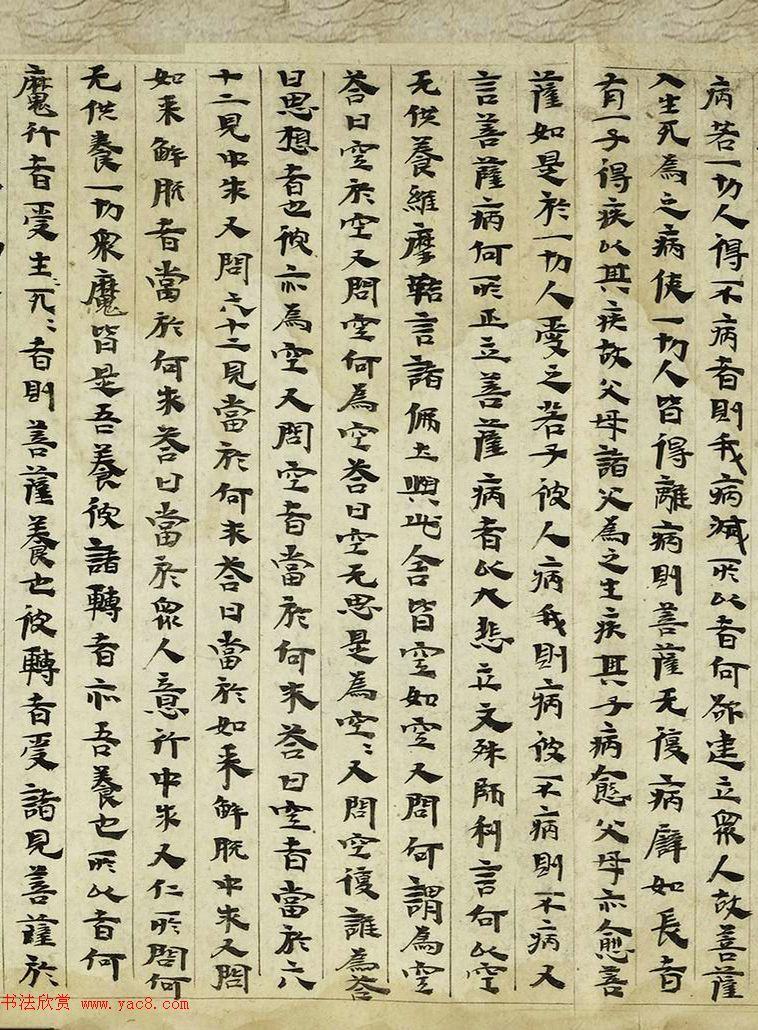 病若一切人得不病者則我病滅所以者何欲建立眾人故菩薩
入生死為之病使一切人皆得離病則菩薩无復病辟如長者
有一子得疾以其疾故父母諸父為之生疾其子病愈父母亦愈菩
薩如是於一切人愛之若子彼人病我則病彼不病則不病又
言菩薩病何所正立菩薩病者以大悲立文殊師利言何以空
无供養維摩詰言諸佛土與此舍皆空如空又問何謂為空
答曰空於空又問空何為空答曰空无思是為空〻又問空復誰為答
曰思想者也彼亦為空又問空者當於何求答曰空者當於六
十二見中求又問六十二見當於何求答曰當於如來解脫中求又問
如來解脫者當於何求答曰當於眾人意行中求又仁所問何
无供養一切眾魔皆是吾養彼諸轉者亦吾養也所以者何
魔行者受生死〻者則菩薩養也彼轉者受諸見菩薩於
书法欣赏 www.yac8.com